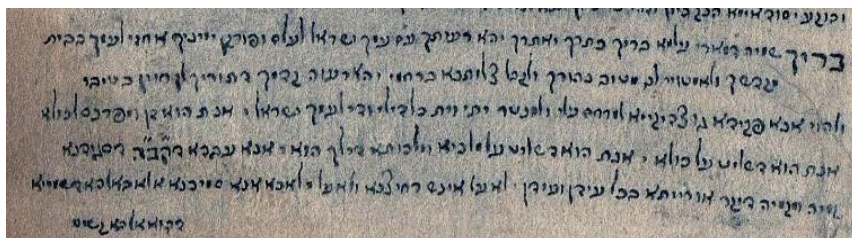 בריך שמיה דמארי עלמא בריך כתרך ואתרך יהא רעותך עם עמך ישראל לעלם ופורקן ימינך אחזי לעמך בבית
מקדשך ולאמטויי לן מטוב נהורך ולקבל צלותנא ברחמי יהא רעוה קדמך דתוריך לן חיין בטיבו
ולהוי אנא פקידא גו צדיקייא למרחם עלי ולמנטר יתי וית כל די לי ודי לעמך ישראל אנת הוא זן ומפרנס לכולא
אנת הוא דשליט על כולא אנת הוא דשליט על מלכיא ומלכותא דילך הוא אנא עבדא דקב"ה דסגידנא
קמיה ומקמיה דיקר אורייתא בכל עידן ועידן לא על אינש רחיצנא ולא על אנא סמיכנא אלא באלהא דשמייא
דהוא אלהא קשוט